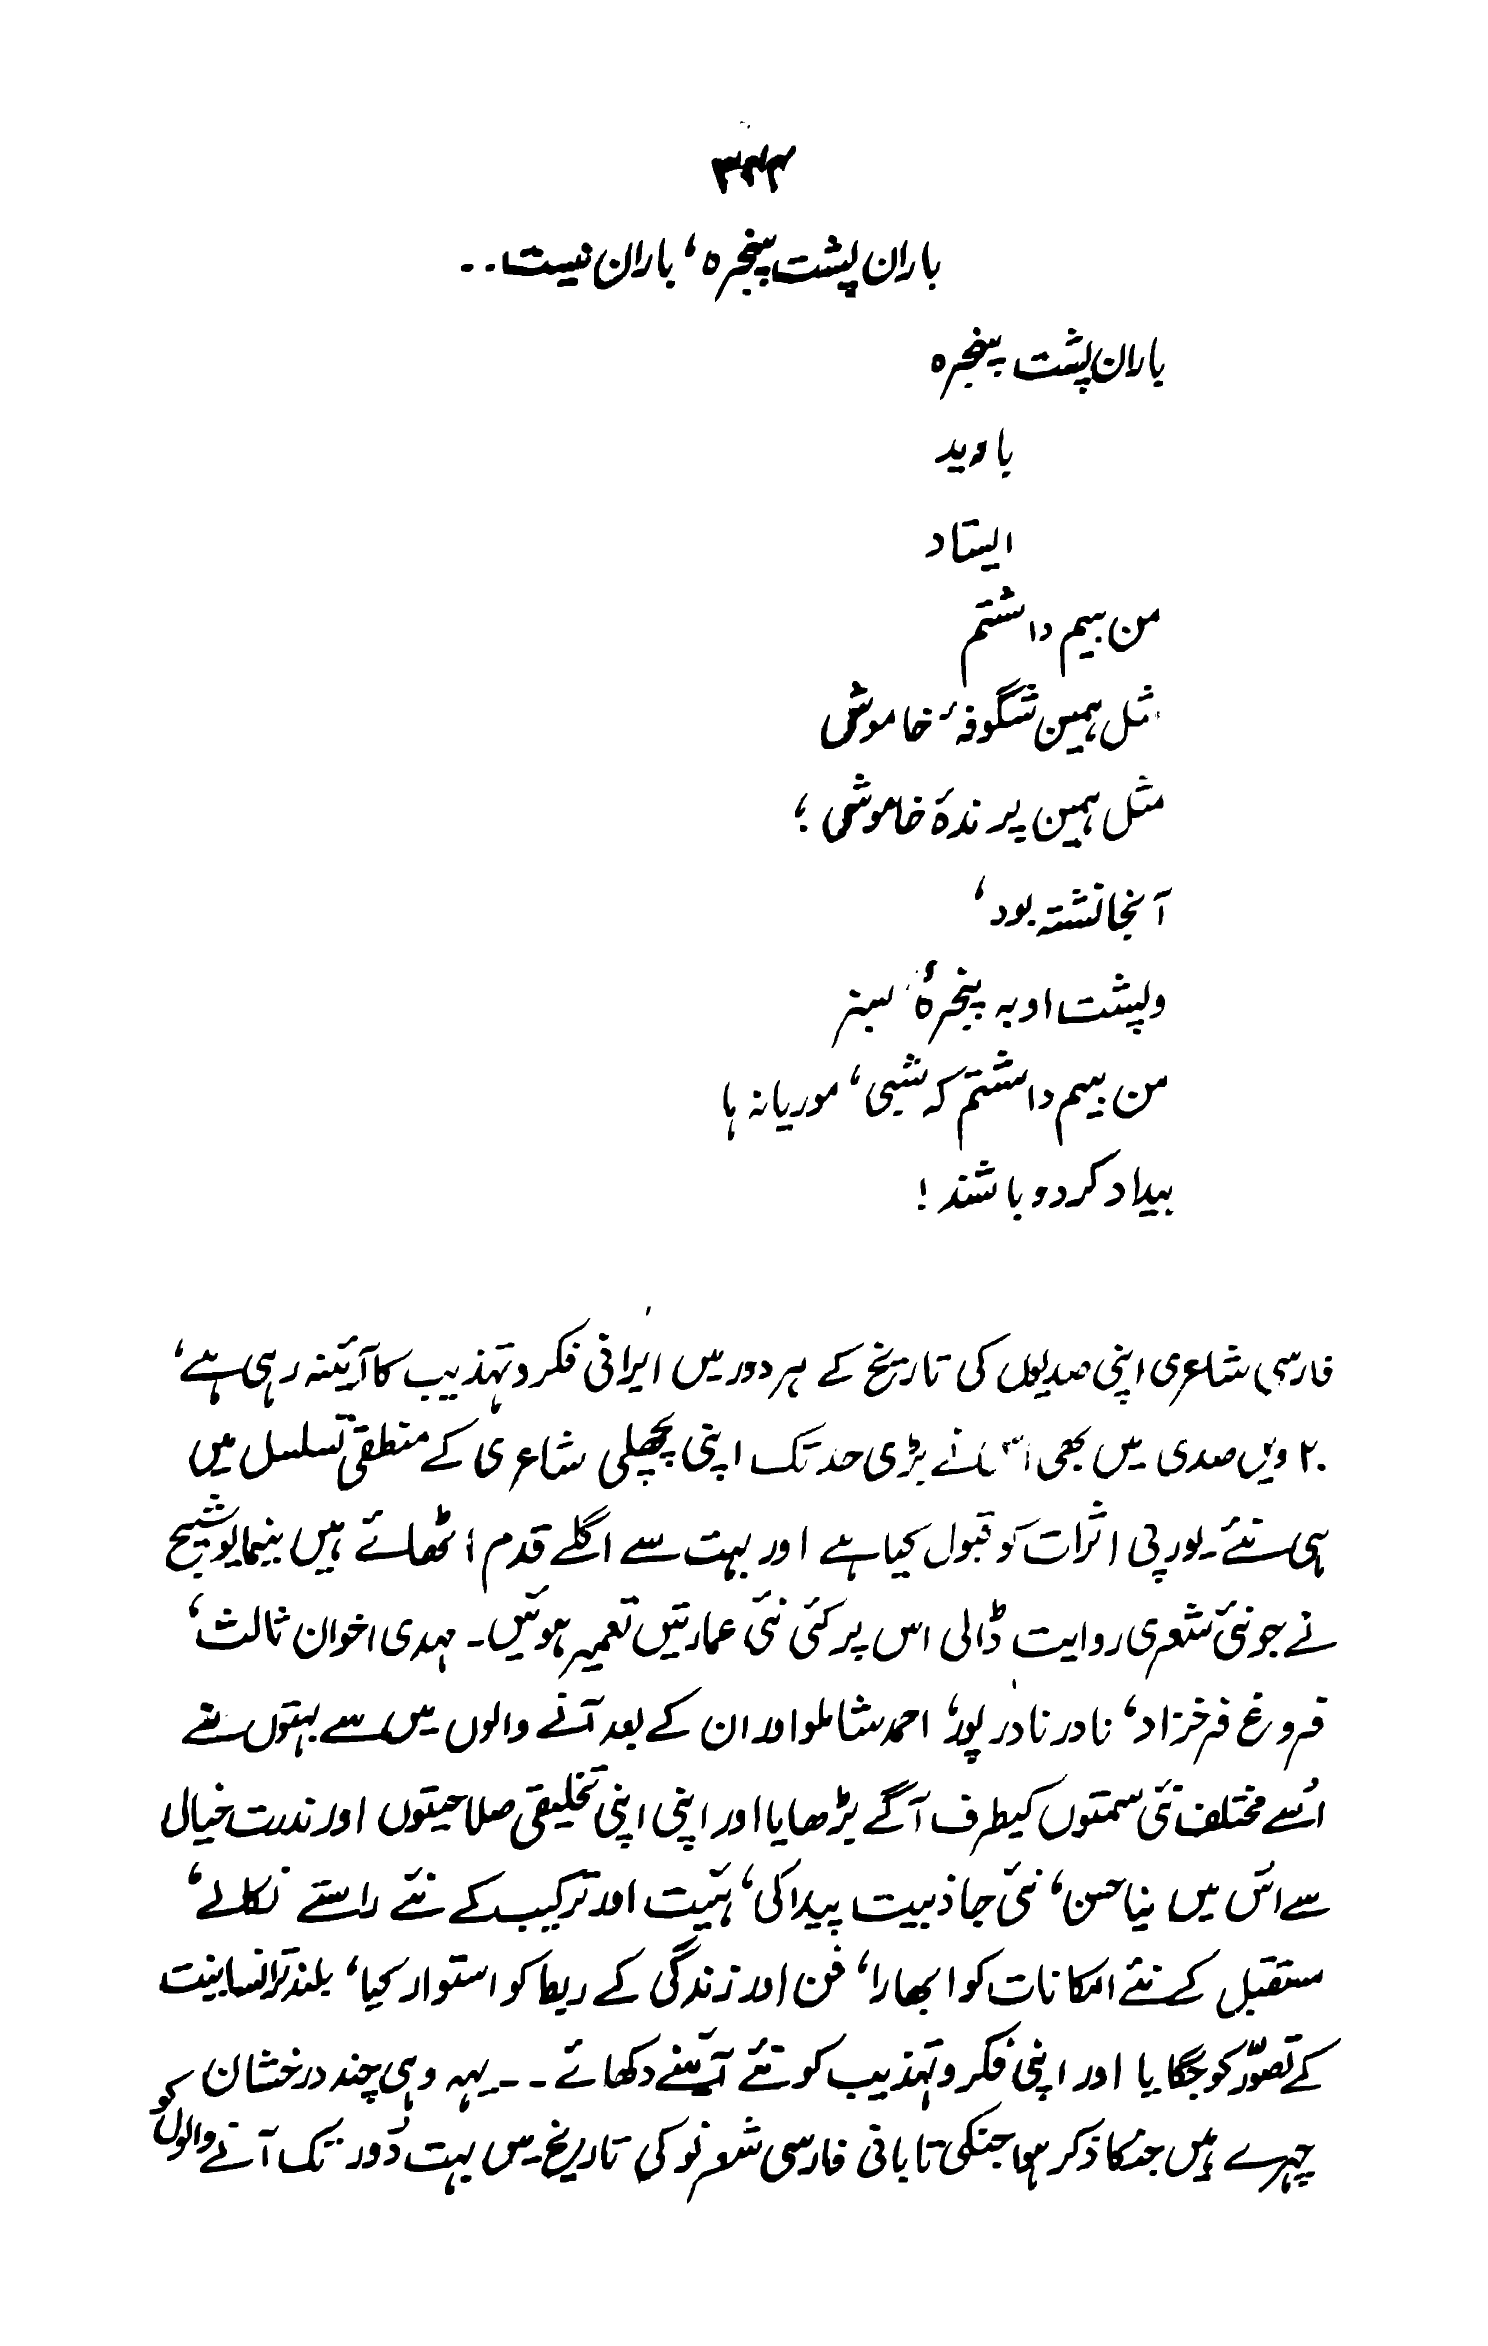 باران پشت پنجرہ، باران نیست۔۔
باران پشت پنجرہ
با دید
ایستاد
من بیم داشتم
مثل ہمین شگوفۂ خاموشی
مثل ہمین پرندۂ خاموشی ؛
آنجا نشتہ بود،
و پشت او بہ پنجرۂ سبز
من بیم داشتم کہ شبی، موریانہ ہا
بیداد کردہ باشند !
فارسی شاعری اپنی صدیوں کی تاریخ کے ہر دور میں ایرانی فکر و تہذیب کا آئینہ رہی ہے،
۲۰ ویں صدی میں بھی اس نے بڑی حد تک اپنی پچھلی شاعری کے منطقی تسلسل میں
ہی نئے۔ یورپی اثرات کو قبول کیا ہے اور بہت سے اگلے قدم اٹھائے ہیں نیما یوشیح
نے جو نئی شعری روایت ڈالی اس پر کئی نئی عمارتیں تعمیر ہوئیں۔ مہدی اخوان ثالث،
فروغ فرخزاد، نادر نادر پور، احمد شاملو اور ان کے بعد آنے والوں میں سے بہتوں نے
اُسے مختلف نئی سمتوں کیطرف آگے بڑھایا اور اپنی اپنی تخلیقی صلاحیتوں اور ندرت خیال
سے اس میں نیا حسن، نئی جاذبیت پیدا کی، ہئیت اور ترکیب کے نئے راستے نکالے،
مستقبل کے نئے امکانات کو ابھارا، فن اور زندگی کے ربط کو استوار کیا، بلند تر انسانیت
کے تصوّر کو جگایا اور اپنی فکر و تہذیب کو نئے آئینے دکھائے۔۔ یہہ وہی چند درخشان
چہرے ہیں جنکا ذکر ہوا جنکی تابانی فارسی شعر نو کی تاریخ میں بہت دُور تک آنے والوں کو